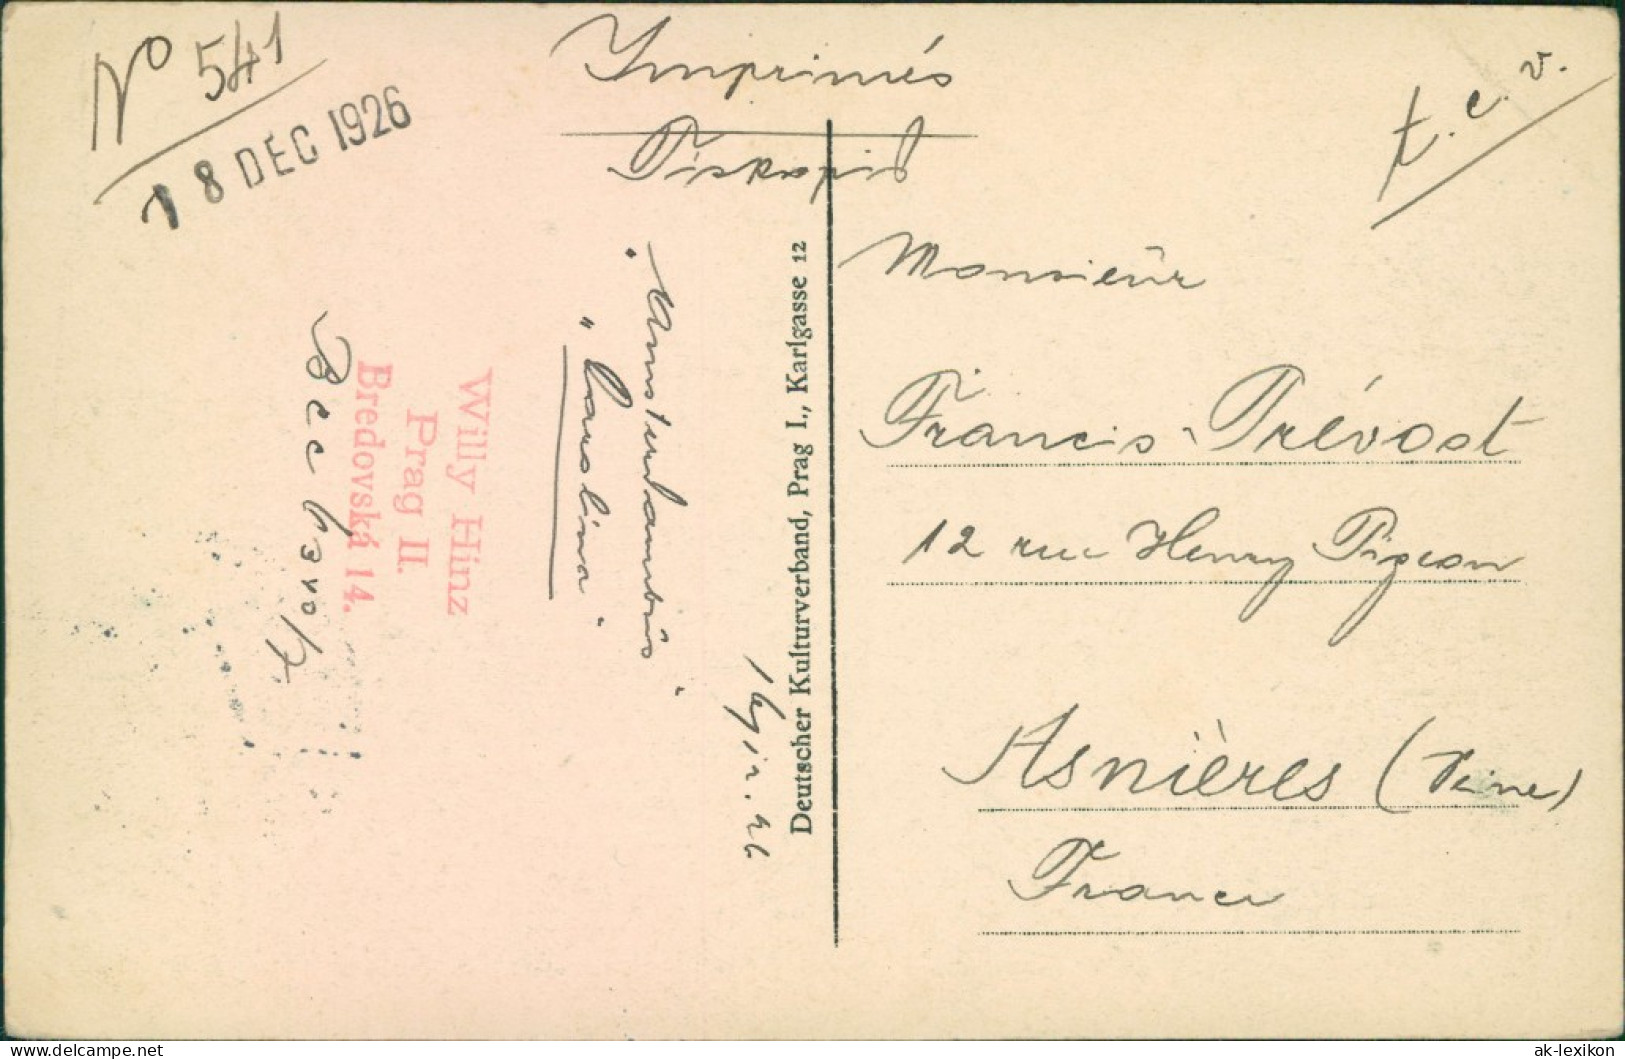 No 541
18 DEC 1926
Imprimés
Tiskopis
t. c. v.
Monsieur
Francis Prévost
12 rue Henry Pigeon
Asnières (Seine)
France
Deutscher Kulturverband, Prag I., Karlgasse 12
"Carolina"
Willy Hinz
Prag II.
Bredovská 14.
www.delcampe.net
ak-lexikon